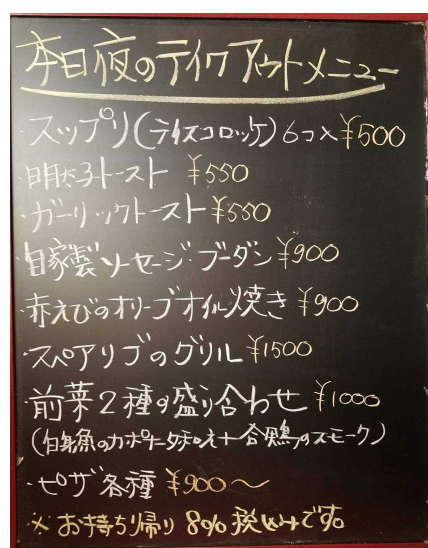 本日夜のテイクアウトメニュー
・スップリ(ライスコロッケ)6コ入¥500
・明太子トースト ¥550
・ガーリックトースト¥550
・自家製ソーセージ・ブーダン¥900
・赤えびのオリーブオイル焼き¥900
・スペアリブのグリル¥1500
・前菜2種の盛り合わせ¥1000
(白身魚のカポナータチョイス+合鴨のスモーク)
・ピザ各種 ¥900〜
※お持ち帰り 8%税込みです。